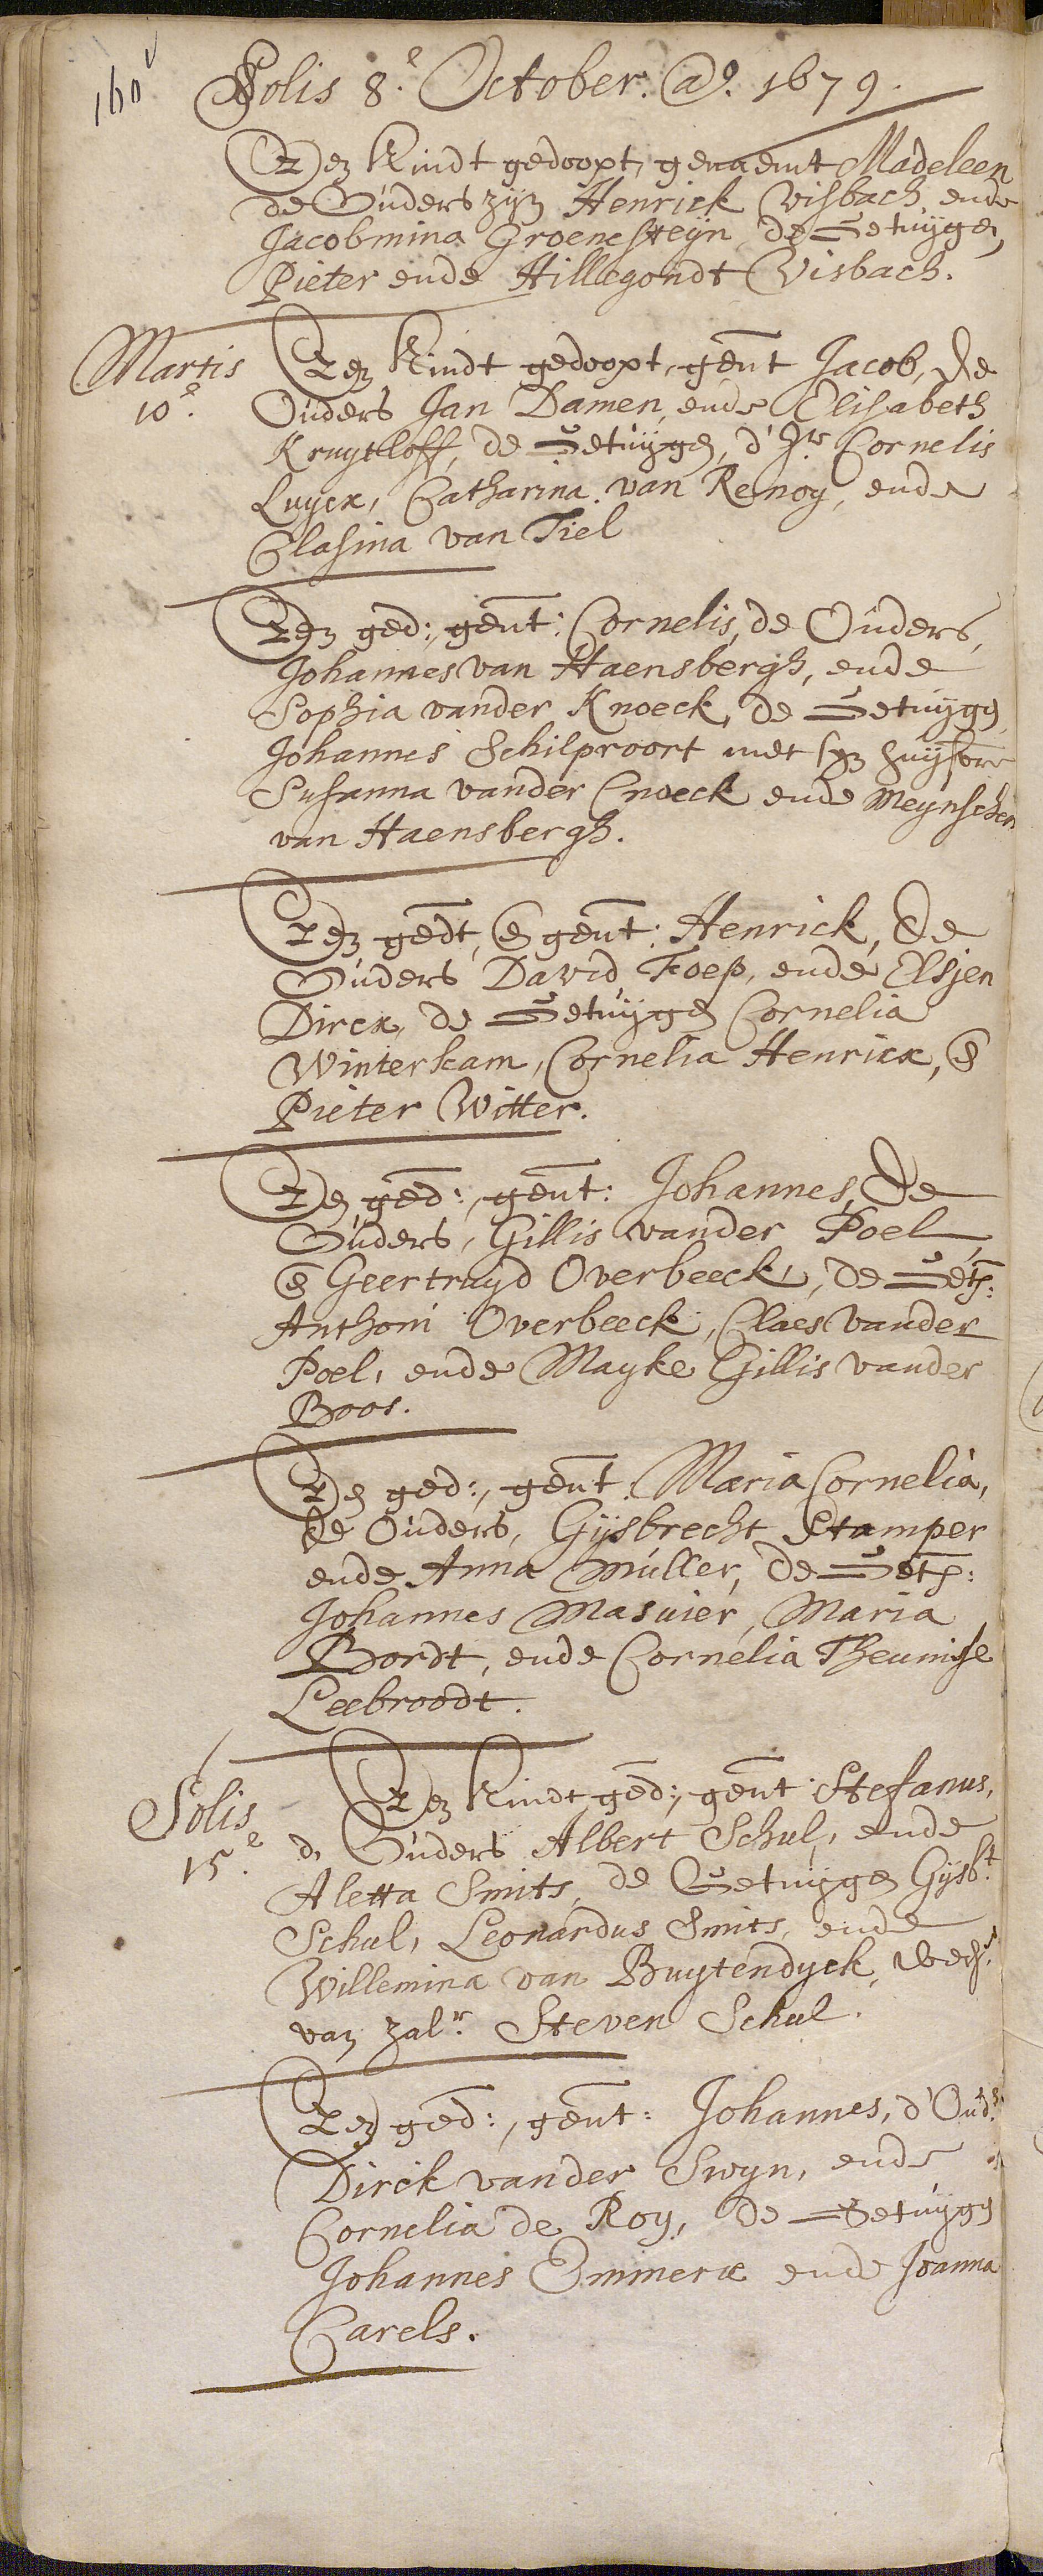 160v
Solis 8.e October. Ao. 1679.
Een Kindt gedoopt, genaemt Madeleen
de Ouders zijn Henrick Visbach ende
Jacobmina Groenesteyn, de Getuygen
Pieter ende Hillegondt Visbach.
Martis
10.e
Een Kindt gedoopt, gent Jacob, de
Ouders Jan Damen, ende Elisabeth
Kruytloff, de Getuygen, d'Hr Cornelis
Luycx, Catharina van Renoy, ende
Clasina van Tiel
Een ged:, gent: Cornelis, de Ouders,
Johannes van Haensbergh, ende
Sophia vander Knoeck, de Getuygen
Johannes Schilproort met syn huysvre
Susanna vander Cnoeck ende Meynschen
van Haensbergh.
Een gedt, en gent: Henrick, de
Ouders David Koep, ende Elsjen
Dircx, de Getuygen Cornelia
Winterkam, Cornelia Henricx, en
Pieter Witter.
Een ged:, gent: Johannes, de
Ouders, Gillis vander Poel,
en Geertruyd Overbeeck, de Get:
Anthoni Overbeeck, Claes vander
Poel, ende Mayke Gillis vander
Boos.
Een ged:, gent. Maria Cornelia,
de Ouders, Gysbrecht Stamper
ende Anna Müller, de Get:
Johannes Masuier, Maria
Bordt, ende Cornelia Theunisse
Leebroodt.
Solis
15.e
Een Kindt ged:, gent: Stefanus,
d. Ouders Albert Schul, ende
Aletta Smits, de Getuygen Gysbt.
Schul, Leonardus Smits, ende
Willemina van Buytendyck, Wede.
van zalr. Steven Schul.
Een ged:, gent: Johannes, d'Oud.rs
Dirck vander Swyn, ende
Cornelia de Roy, de Getuygen
Johannes Emmerx ende Joanna
Carels.